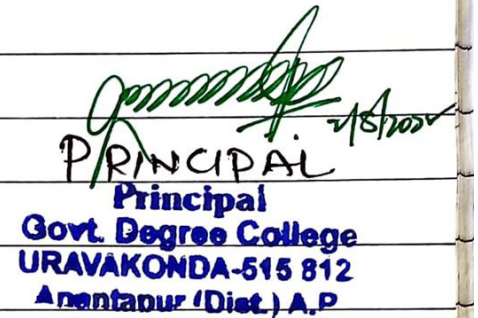 PRINCIPAL
Principal
Govt. Degree College
URAVAKONDA-515 812
Anantapur (Dist.) A.P